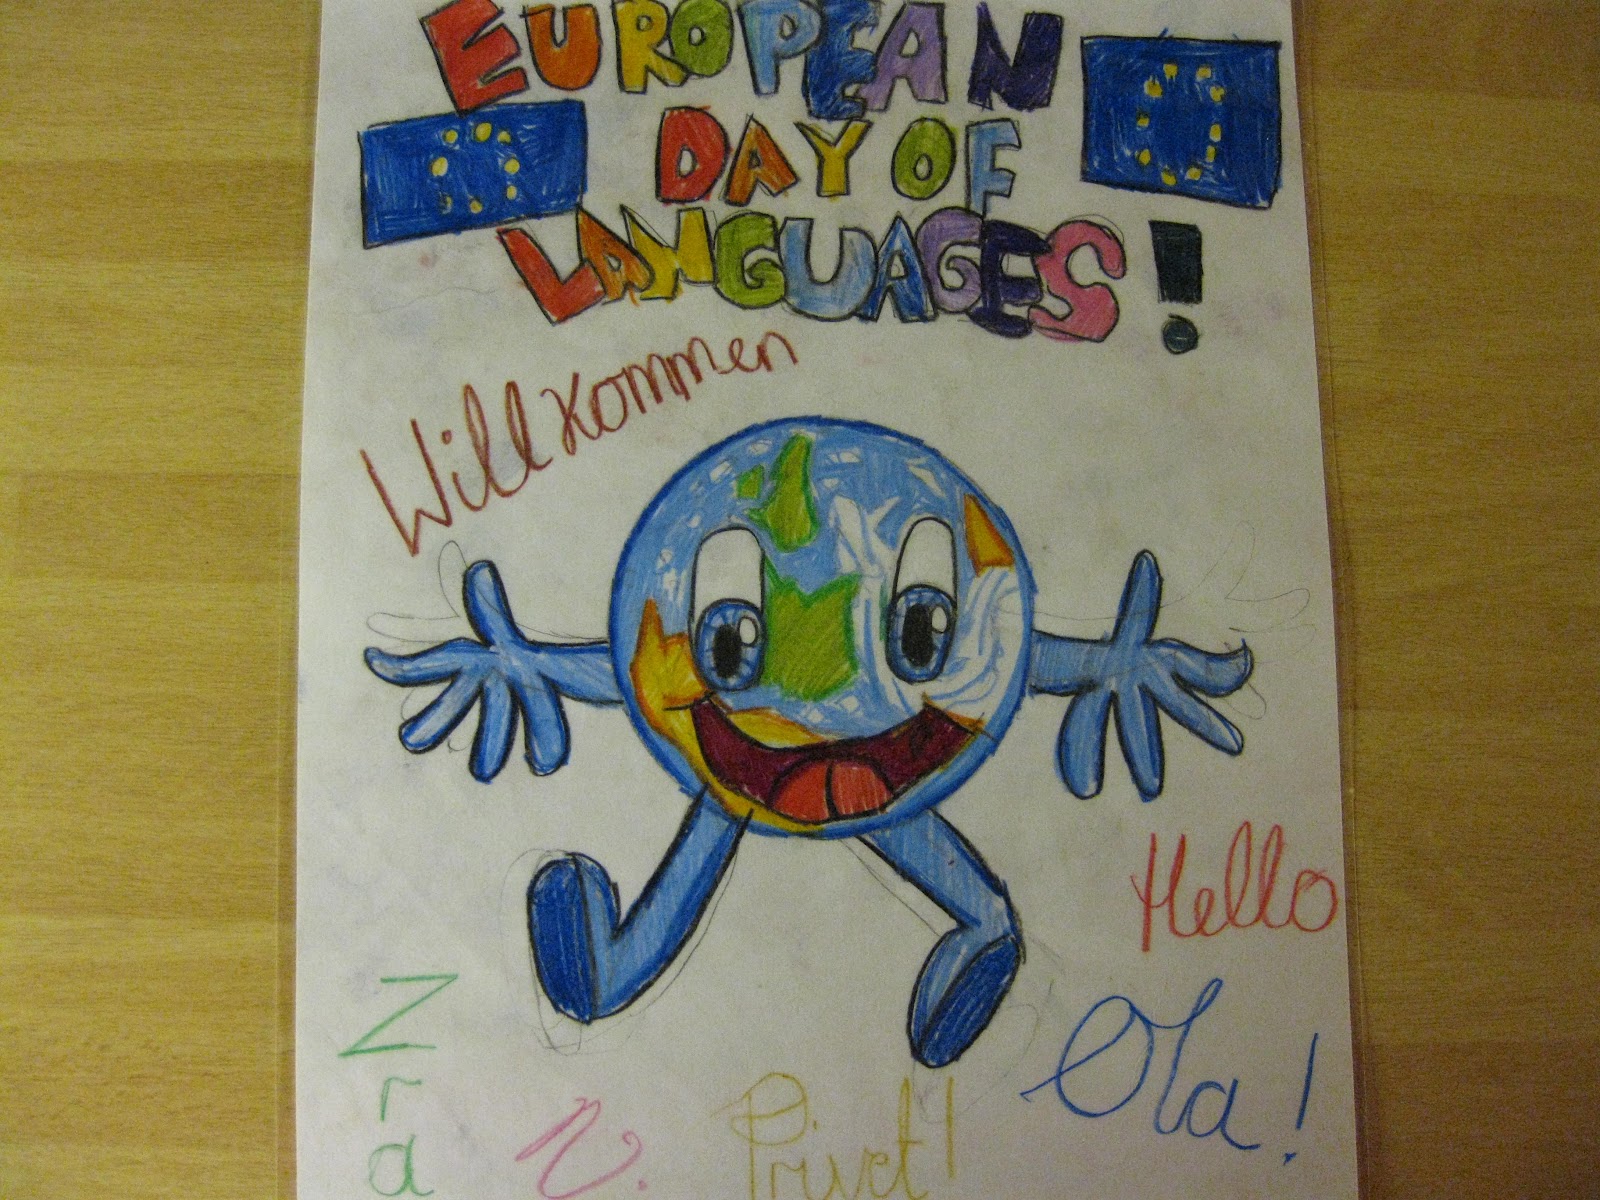 EUROPEAN
DAY OF
LANGUAGES!
Willkommen
Hello
Ola!
Privet!
Zra